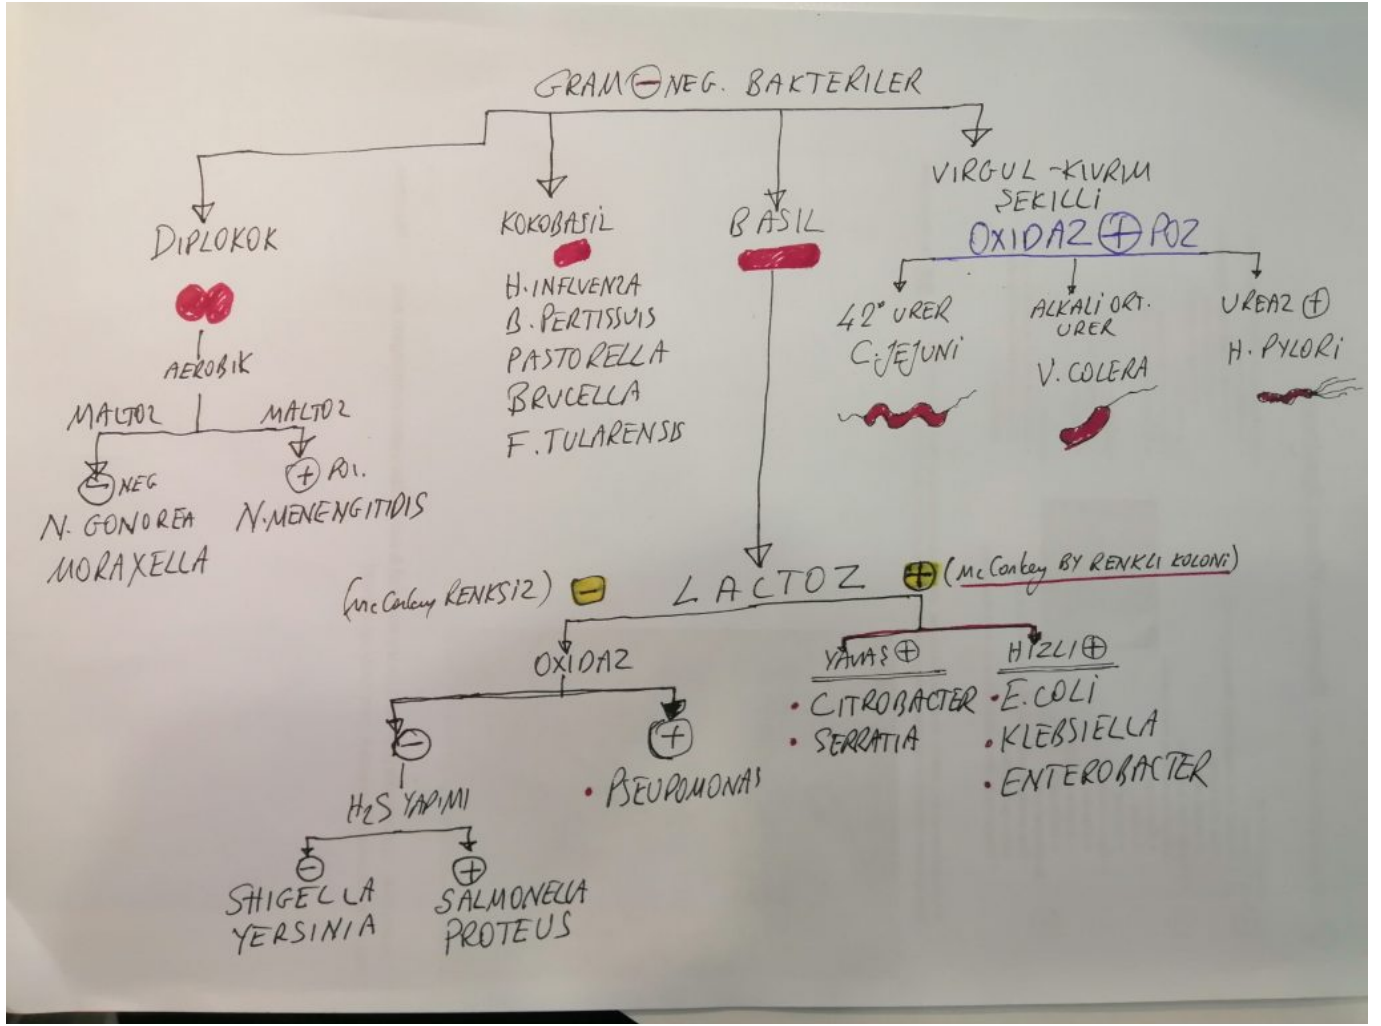 GRAM ⊖ NEG. BAKTERILER
DIPLOKOK
AEROBIK
MALTOZ
MALTOZ
⊖ NEG
N. GONOREA
MORAXELLA
⊕ POZ.
N. MENENGITIDIS
KOKOBASIL
H. INFLUENZA
B. PERTISSUIS
PASTORELLA
BRUCELLA
F. TULARENSIS
BASIL
VIRGUL - KIVRIM
ŞEKILLİ
OXIDAZ ⊕ POZ
42° URER
C. JEJUNI
ALKALİ ORT.
URER
V. COLERA
UREAZ ⊕
H. PYLORİ
(McConkey RENKSİZ) −
LACTOZ
+ (McConkey BY RENKLI KOLONİ)
OXIDAZ
⊖
⊕
• PSEUDOMONAS
H2S YAPIMI
⊖
SHIGELLA
YERSINIA
⊕
SALMONELLA
PROTEUS
YAVAŞ ⊕
• CITROBACTER
• SERRATIA
HIZLI ⊕
• E. COLİ
• KLEBSIELLA
• ENTEROBACTER